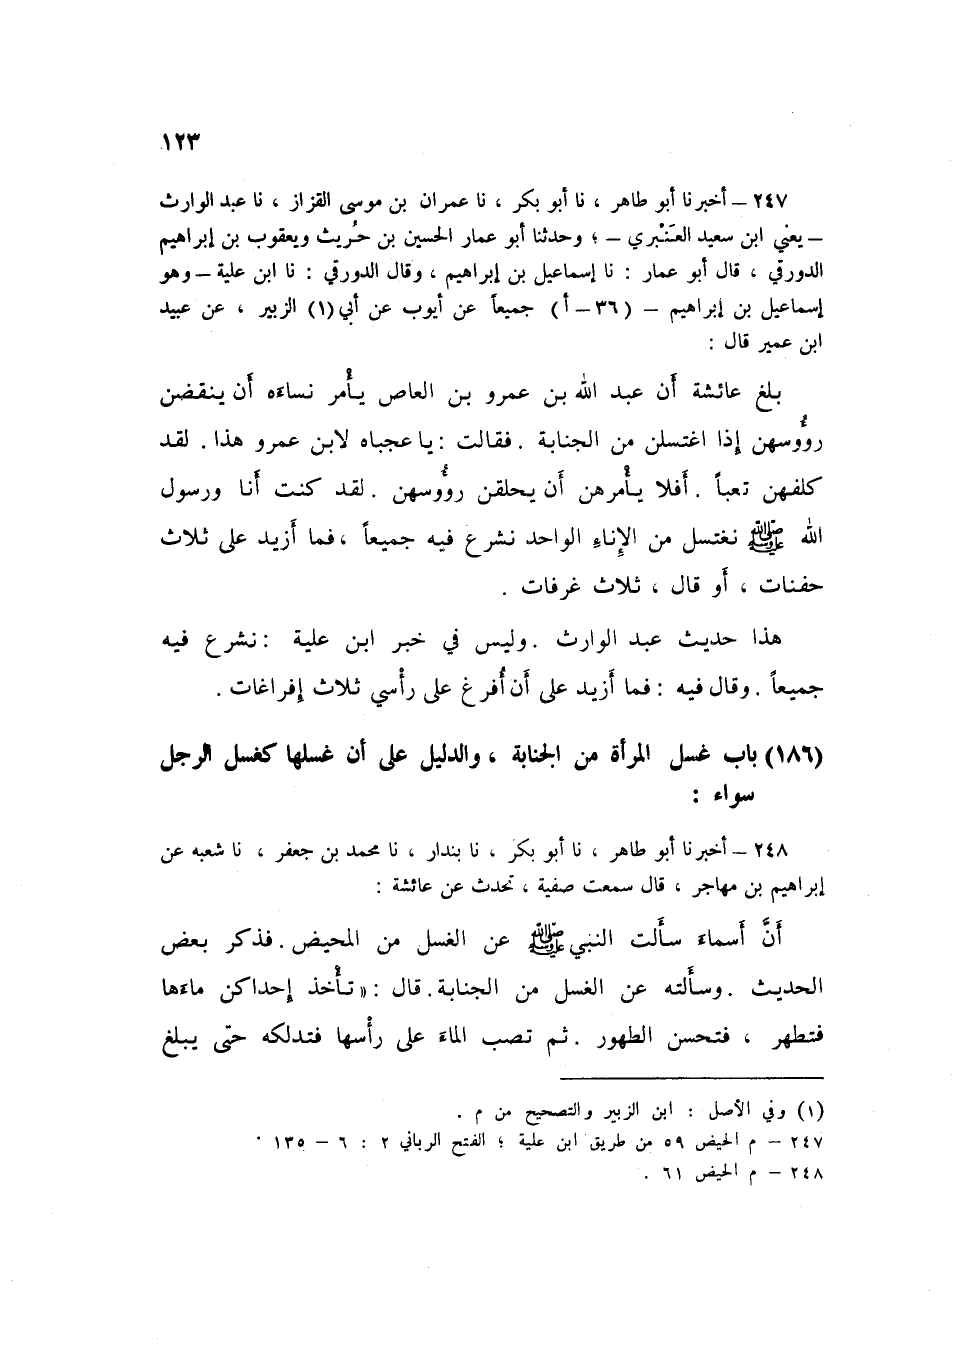 ١٢٣
٢٤٧ ــ أخبرنا أبو طاهر ، نا أبو بكر ، نا عمران بن موسى القزاز ، نا عبد الوارث
ــ يعني ابن سعيد العَنْبري ــ ؛ وحدثنا أبو عمار الحسين بن حُريث ويعقوب بن إبراهيم
الدورقي ، قال أبو عمار : نا إسماعيل بن إبراهيم ، وقال الدورقي : نا ابن علية ــ وهو
إسماعيل بن إبراهيم ــ ( ٣٦ ــ أ ) جميعاً عن أيوب عن أبي (١) الزبير ، عن عبيد
ابن عمير قال :
بلغ عائشة أن عبد الله بن عمرو بن العاص يأمُر نساءَه أن ينقضن
رؤُوسهن إذا اغتسلن من الجنابة . فقالت : يا عجباه لابن عمرو هذا . لقد
كلفهن تعباً . أفلا يأمُرهن أن يحلقن رؤُوسهن . لقد كنت أنا ورسول
الله ﷺ نغتسل من الإِناءِ الواحد نشرع فيه جميعاً ، فما أزيد على ثلاث
حفنات ، أو قال ، ثلاث غرفات .
هذا حديث عبد الوارث . وليس في خبر ابن علية : نشرع فيه
جميعاً . وقال فيه : فما أزيد على أن أُفرغ على رأسي ثلاث إفراغات .
(١٨٦) باب غسل المرأة من الجنابة ، والدليل على أن غسلها كغسل الرجل
سواء :
٢٤٨ ــ أخبرنا أبو طاهر ، نا أبو بكر ، نا بندار ، نا محمد بن جعفر ، نا شعبه عن
إبراهيم بن مهاجر ، قال سمعت صفية ، تحدث عن عائشة :
أنَّ أسماءَ سألت النبي ﷺ عن الغسل من المحيض . فذكر بعض
الحديث . وسألته عن الغسل من الجنابة . قال : « تأْخُذ إحداكن ماءَها
فتطهر ، فتحسن الطهور . ثم تصب الماءَ على رأسها فتدلكه حتى يبلغ
(١) وفي الأصل : ابن الزبير والتصحيح من م .
٢٤٧ ــ م الحيض ٥٩ من طريق ابن علية ؛ الفتح الرباني ٢ : ٦ ــ ١٣٥ .
٢٤٨ ــ م الحيض ٦١ .